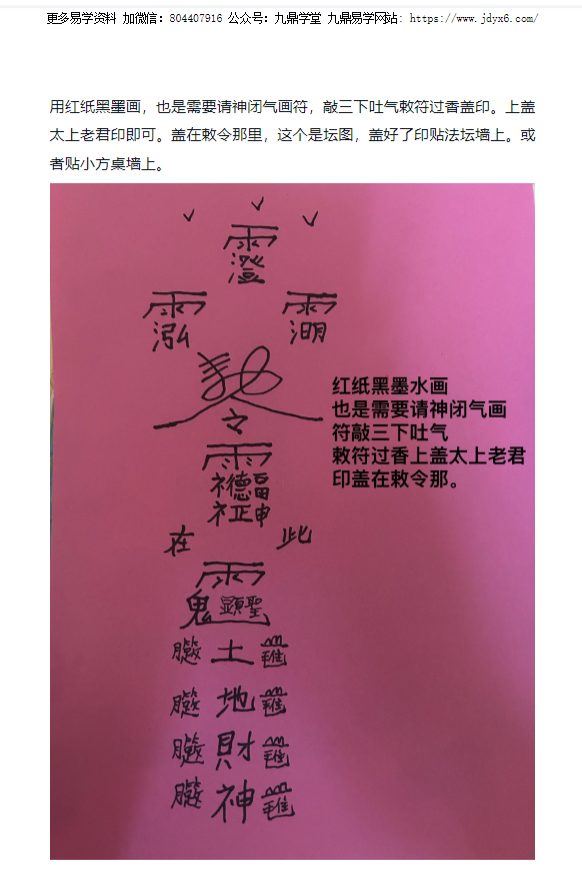 更多易学资料 加微信：804407916 公众号：九鼎学堂 九鼎易学网站: https://www.jdyx6.com/
用红纸黑墨画，也是需要请神闭气画符，敲三下吐气敕符过香盖印。上盖
太上老君印即可。盖在敕令那里，这个是坛图，盖好了印贴法坛墙上。或
者贴小方桌墙上。
红纸黑墨水画
也是需要请神闭气画
符敲三下吐气
敕符过香上盖太上老君
印盖在敕令那。
令
在 此
土
地
財
神